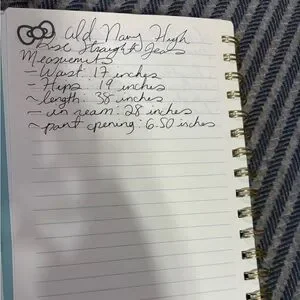 Old Navy High
Rise Straight Jeans
Measuremnts
- Waist 17 inches
- Hips: 19 inches
~ length: 38 inches
- in seam: 28 inches
~ pant opening: 6.50 inches